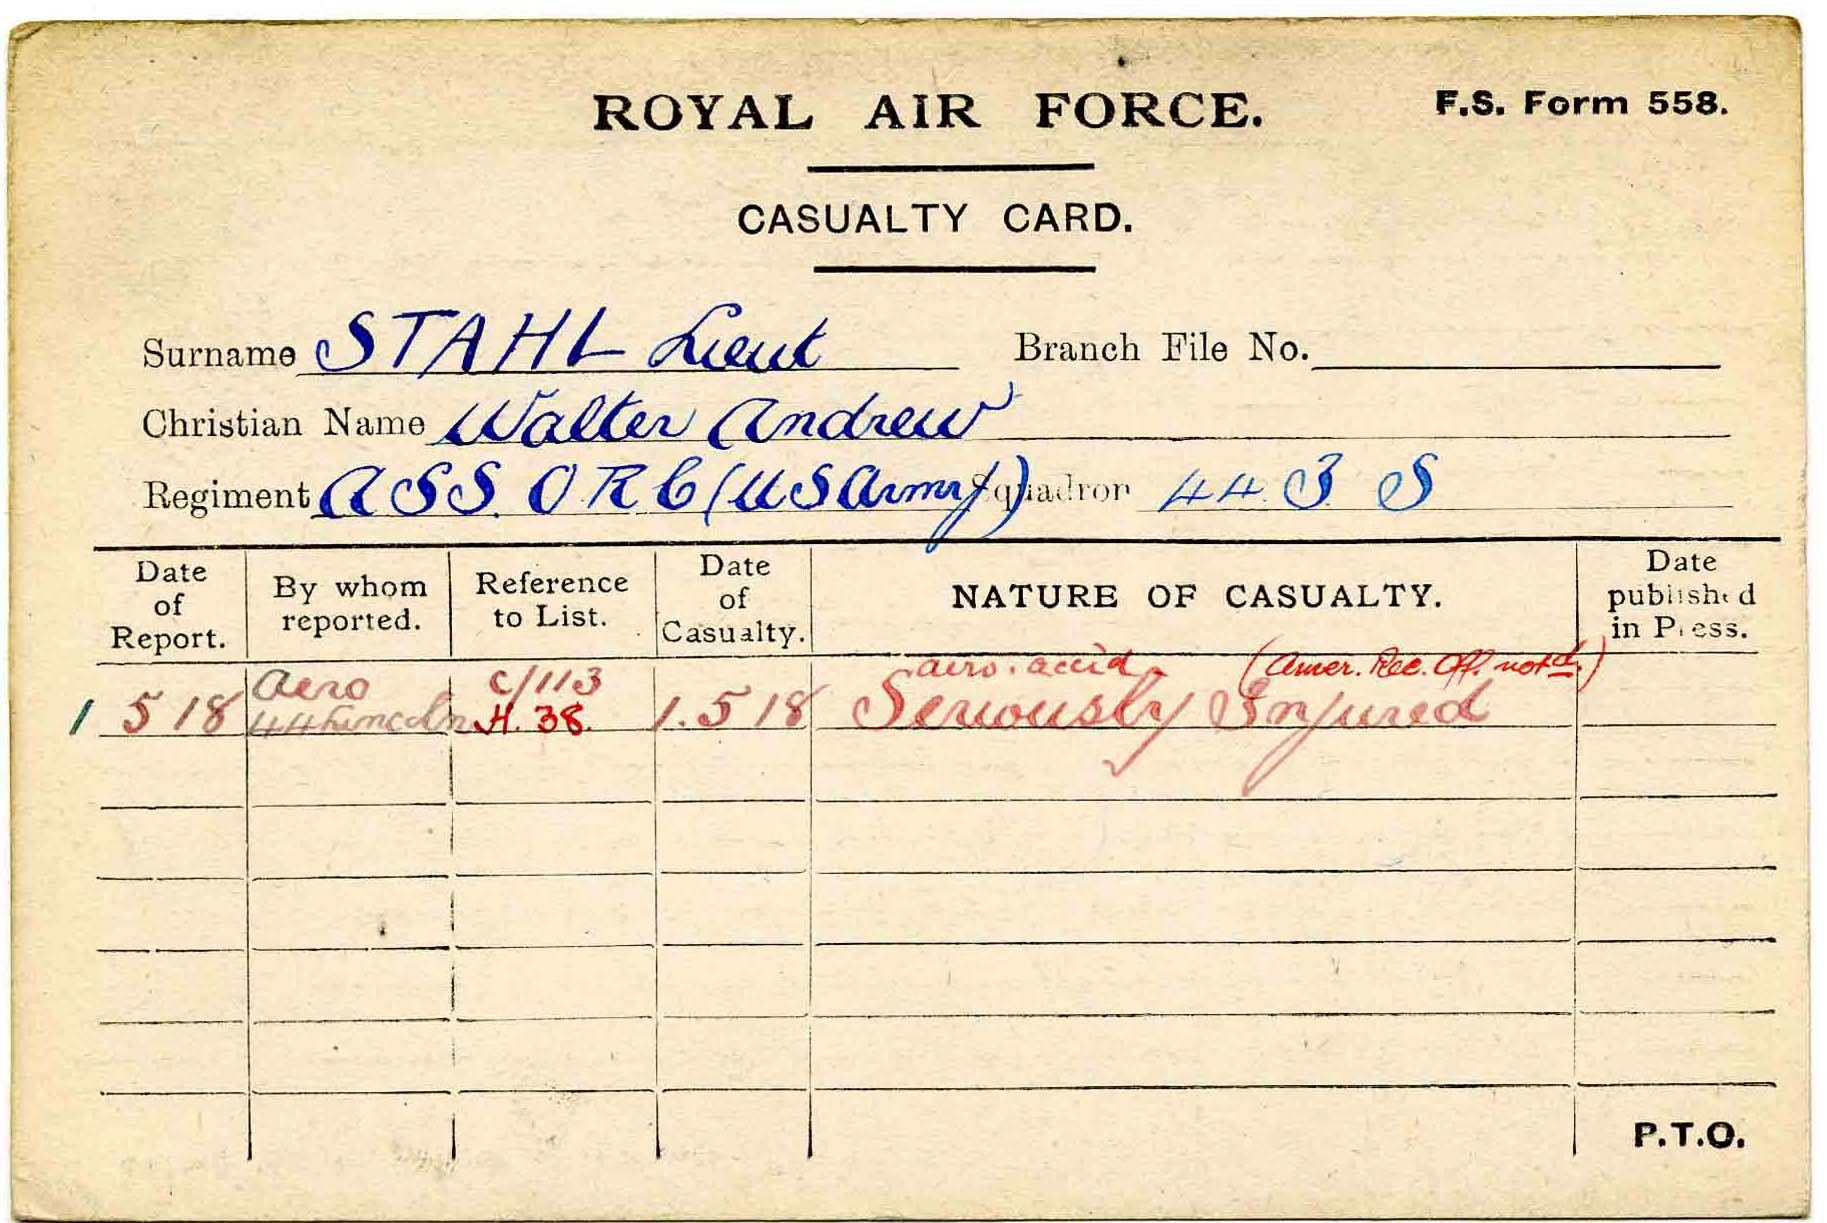 ROYAL AIR FORCE.
F.S. Form 558.
CASUALTY CARD.
Surname STAHL Lieut Branch File No.
Christian Name Walter Andrew
Regiment A S S. O R C (U S Army) Squadron 44 3 S
Date of Report.
By whom reported.
Reference to List.
Date of Casualty.
NATURE OF CASUALTY.
Date published in Press.
aero. accid. (Amer. Rec. Off. notd.)
Aero C/113
1 5 18 44 Lincoln H. 38. 1. 5 18 Seriously Injured
P.T.O.